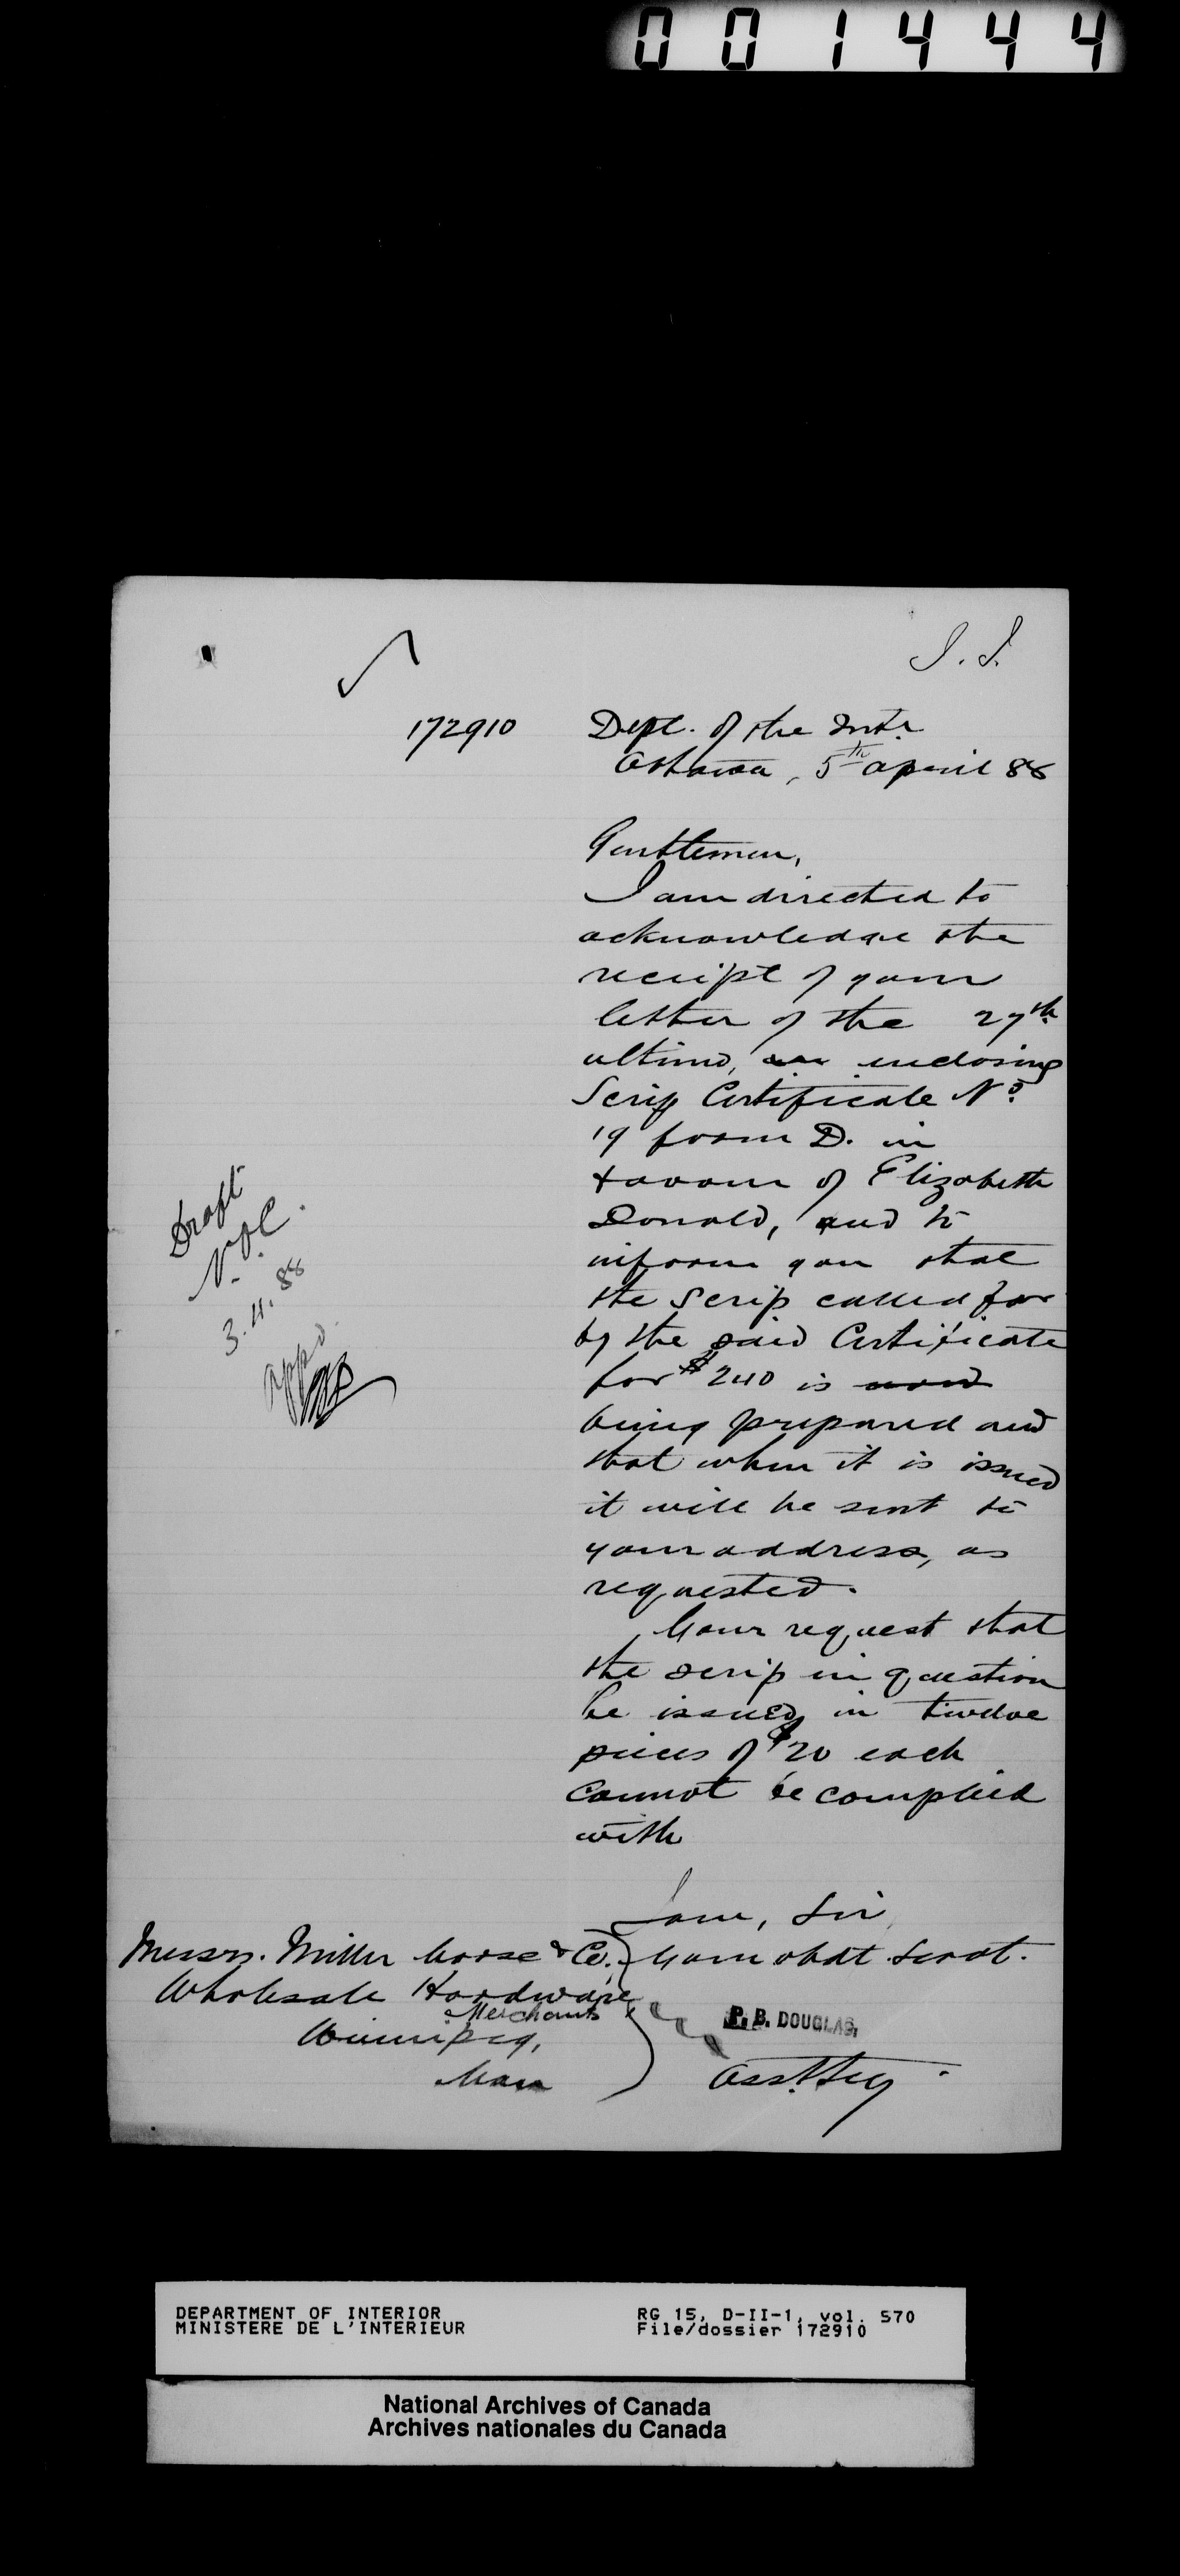 001444
172910
Dept. of the Intr.
Ottawa, 5th April 88
Gentlemen,
I am directed to
acknowledge the
receipt of your
letter of the 27th
ultimo, enclosing
Scrip Certificate No.
19 form D. in
favour of Elizabeth
Donald, and to
inform you that
the Scrip called for
by the said Certificate
for $240 is now
being prepared and
that when it is issued
it will be sent to
your address, as
requested.
Your request that
the scrip in question
be issued in twelve
pieces of $20 each
cannot be complied
with
Draft
3.4.88
appd.
I am, Sir,
Your obdt Servt.
P. B. DOUGLAS,
Asst. Secy
Messrs. Miller Morse & Co.
Wholesale Hardware
Merchants
Winnipeg,
Man
DEPARTMENT OF INTERIOR
MINISTERE DE L'INTERIEUR
RG 15, D-II-1, vol. 570
File/dossier 172910
National Archives of Canada
Archives nationales du Canada